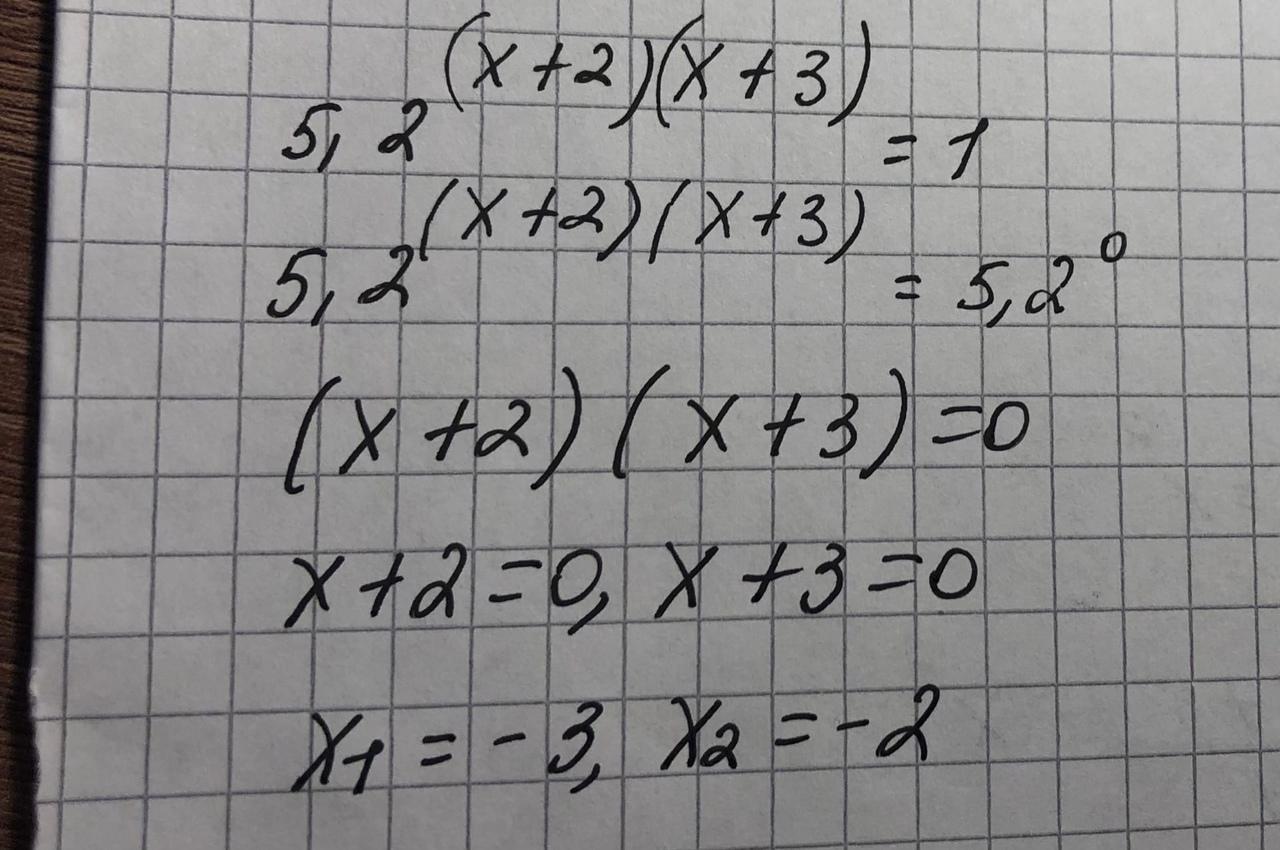 5,2^(x+2)(x+3) = 1
5,2^(x+2)(x+3) = 5,2^0
(x+2)(x+3)=0
x+2=0, x+3=0
x₁ = -3, x₂ = -2